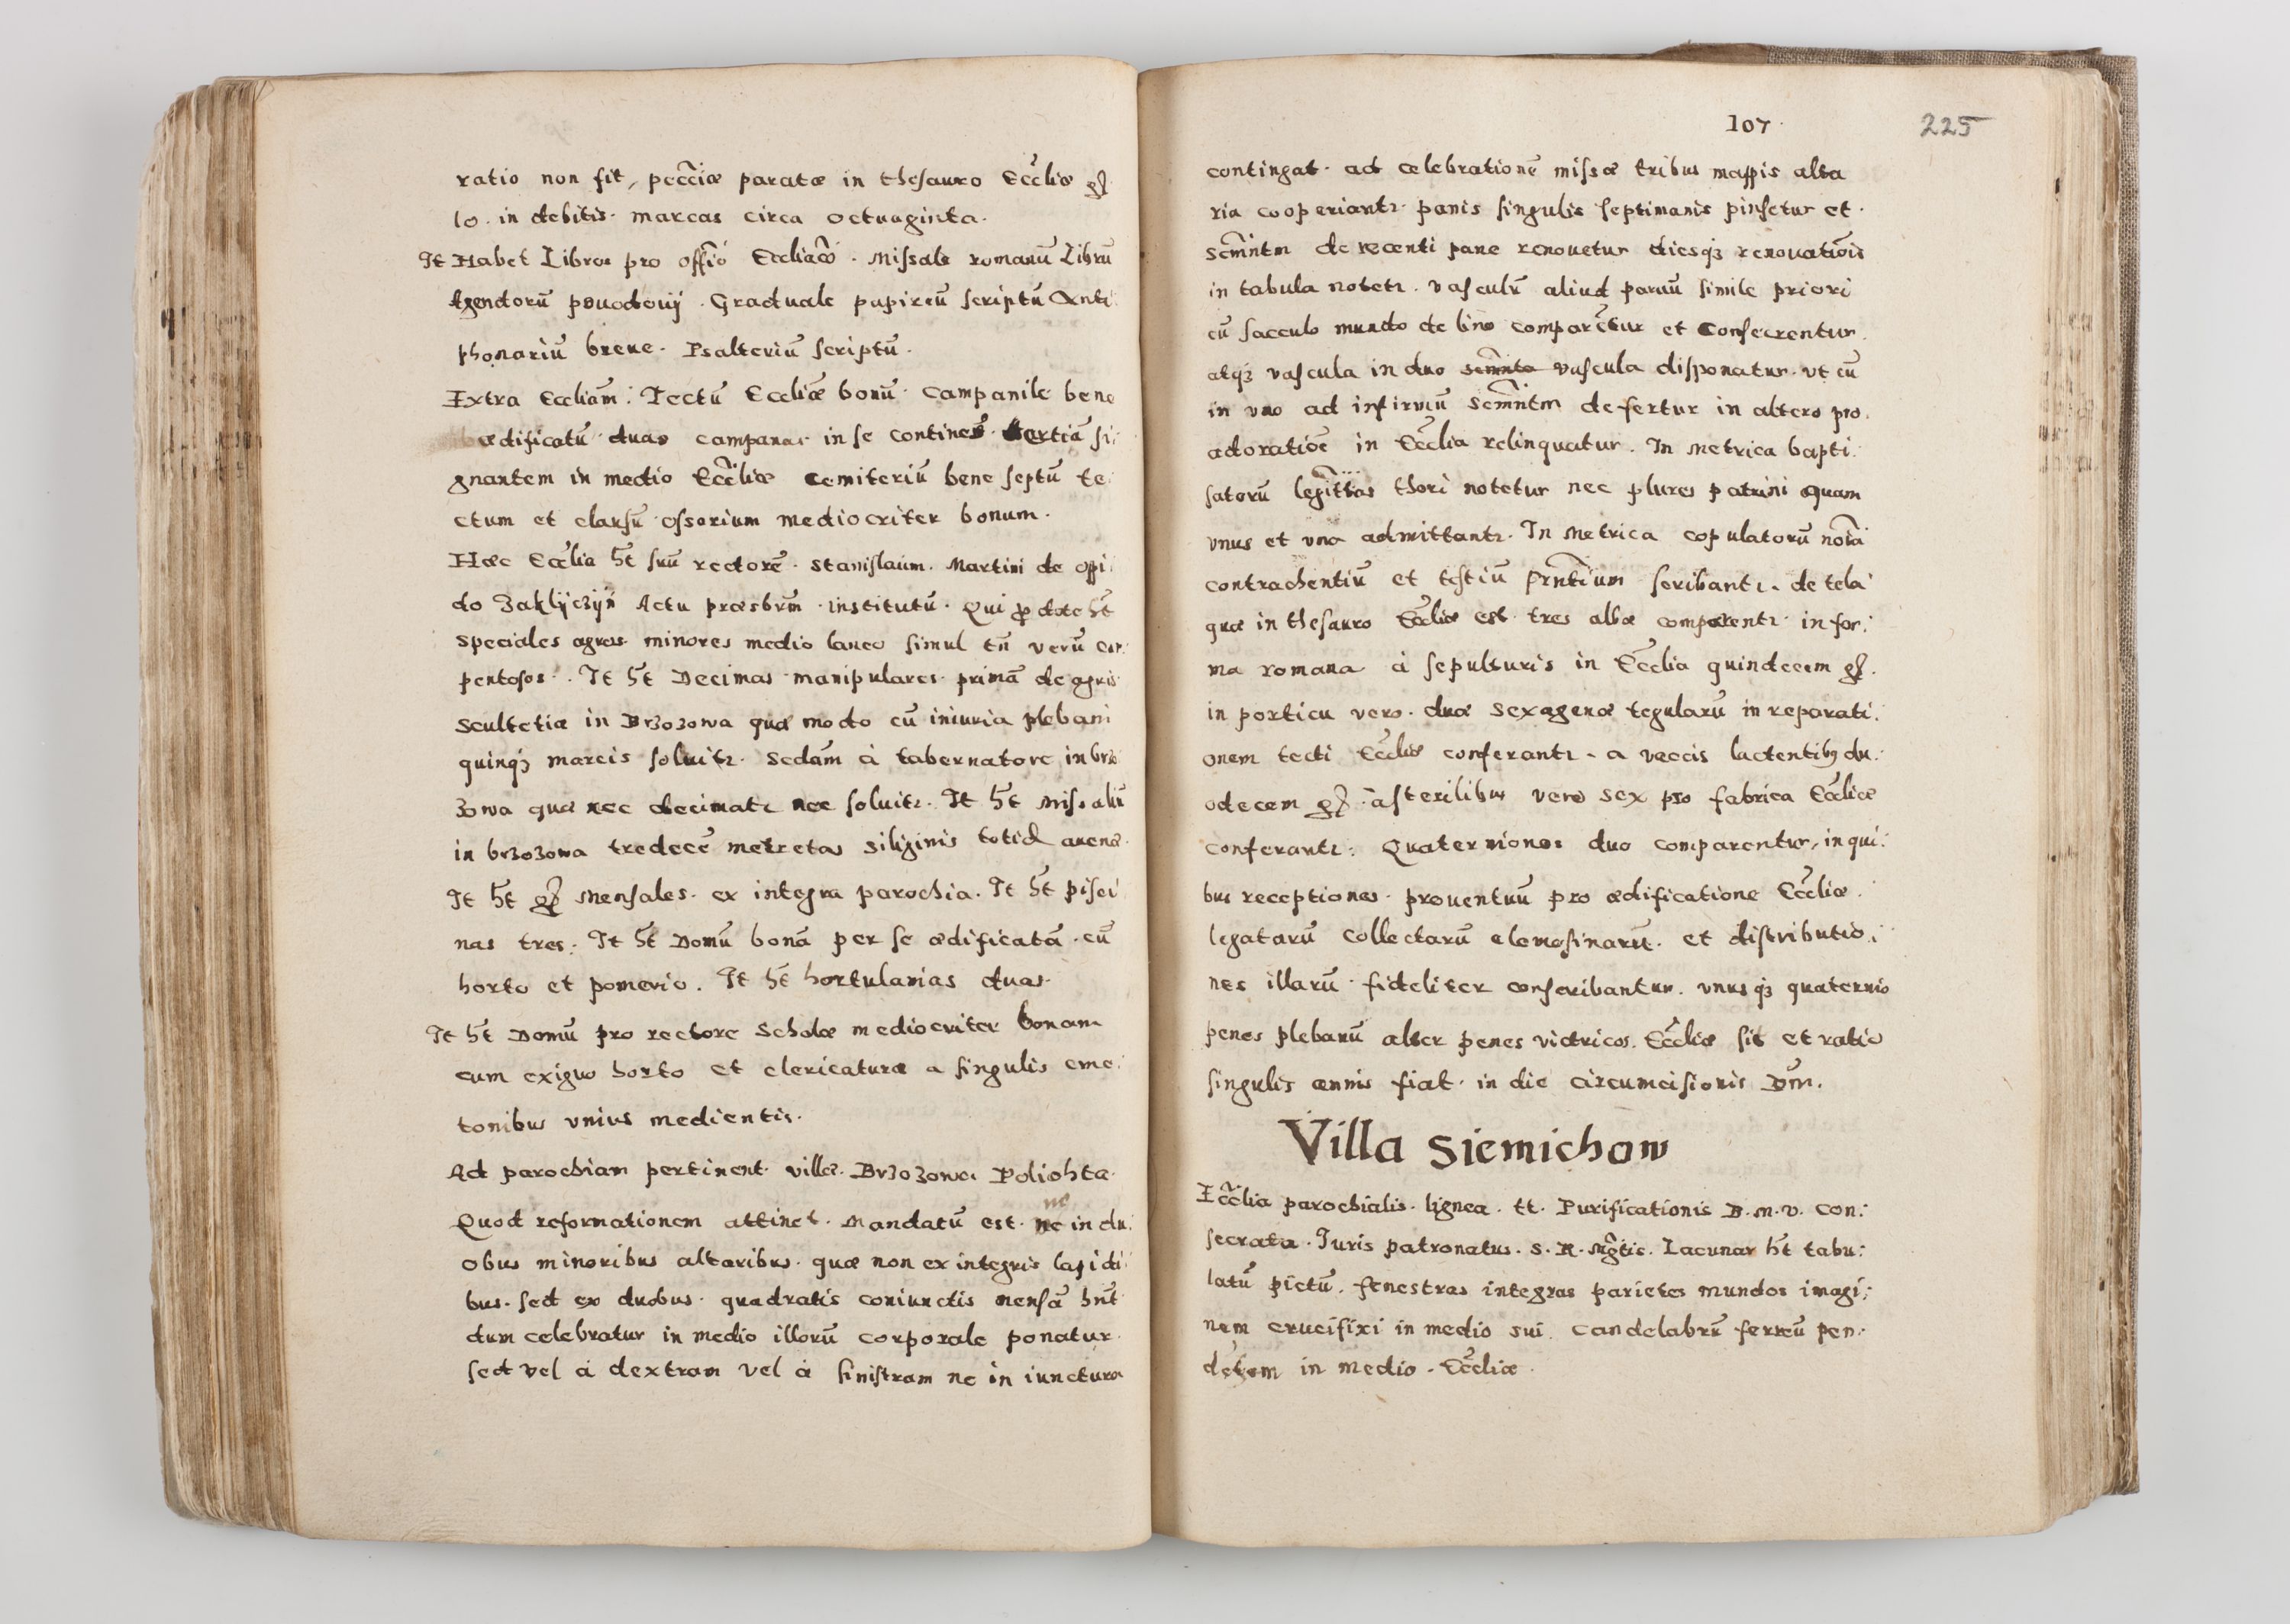 ratio non fit, peccĩæ paratæ in thesauro Eccliæ gỻ
10. in debitis. marcas circa octuaginta.
It Habet Libros pro offiõ Eccliãcõ. Missale romanũ Librũ
Agendorũ Graduale papireũ scriptũ Anti:
phonariũ breue. Psalteriũ scriptũ.
Extra Eccliãm: Tectũ Eccliæ bonũ. Campanile bene
ædificatũ duas campanas in se continẽs. tertiã si:
gnantem in medio Eccliæ cemiteriũ bene septũ te:
ctum et clausũ ossorium mediocriter bonum.
Hæc Ecclia ht̃ suũ rectorẽ. Stanislaum. Martini de oppi:
do Zaklÿczÿn Actu præsbrm̃ institutũ. Qui ꝓ dote ht̃
speciales agros minores medio laneo simul tñ verũ car:
pentosos. It ht̃ Decimas manipulares primã de agris
Scultetiæ in Brzozowa quæ modo cũ iniuria plebani
quinqȝ marcis soluitr. Sedãm à tabernatore in brzo:
zowa quæ nec decimatr nec soluitr. It ht̃ missaliũ
in brzozowa tredecẽ metretas siliginis totid auenæ.
It ht̃ gỻ Mensales. ex integra parochia. It ht̃ pisci:
nas tres. It ht̃ Domũ bonã per se ædificatã. cũ
horto et pomerio. It ht̃ hortulanias duas.
It ht̃ Domũ pro rectore Scholæ mediocriter bonam
cum exiguo horto et clericaturæ a singulis cme:
tonibus vnius medientis.
Ad parochiam pertinent villæ. Brzozowa Poliohta.
Quod reformationem attinet. Mandatũ est. ne in du:
obus minoribus altaribus. quæ non ex integris lapidi:
bus. sed ex duobus quadratis coniunctis mensã hñt
dum celebratur in medio illorũ corporale ponatur.
sed vel à dextram vel à sinistram ne in iunctura
107
225
contingat. ad celebrationẽ missæ tribus mappis alta
ria cooperiantr. panis singulis septimanis pinsetur et.
Scmñtm de recenti pane renouetur diesqȝ renouatiõis
in tabula notetr. vasculũ aliud paruũ simile priori
cũ sacculo mundo de lino comparẽtur et Consecrentur.
atqȝ vascula in duo scmñta vascula disponatur. vt cũ
in vno ad infirmũ Scmñtm defertur in altero pro.
adoratiõe in Ecclia relinquatur. In Metrica bapti:
satorũ legittĩas thori notetur nec plures patrini quam
vnus et vna admittantr. In Metrica copulatorũ noĩa
contrachentiũ et testiũ prñtium scribantr. de tela
quæ in thesauro Eccliæ est. tres albæ comparentr. in for:
ma romana à sepulturis in Ecclia quindecem gỻ.
in porticu vero. duæ sexagenæ tegularũ in reparati:
onem tecti Eccliæ conferantr. a vaccis lactentibȝ du:
odecem gỻ. à sterilibus vero sex pro fabrica Eccliæ
conferantr: Quaterniones duo comparentur, in qui:
bus receptiones. prouentuũ pro ædificatione Eccliæ.
legatarũ collectarũ elemosinarũ. et distributio:
nes illarũ. fideliter conscribantur. vnusqȝ quaternio
penes plebanũ alter penes victricos. Eccliæ sit et ratio
singulis annis fiat. in die circumcisionis Dm̃.
Villa Siemichow
Ecclia parochialis. lignea. tt. Purificationis B. M. V. con:
secrata. Iuris patronatus. S. R. Mgtis. Lacunar ht̃ tabu:
latũ pictũ. fenestras integras parietes mundos imagi:
nem crucifixi in medio sui. Candelabrũ ferreũ pen:
dẽtem in medio. Eccliæ.